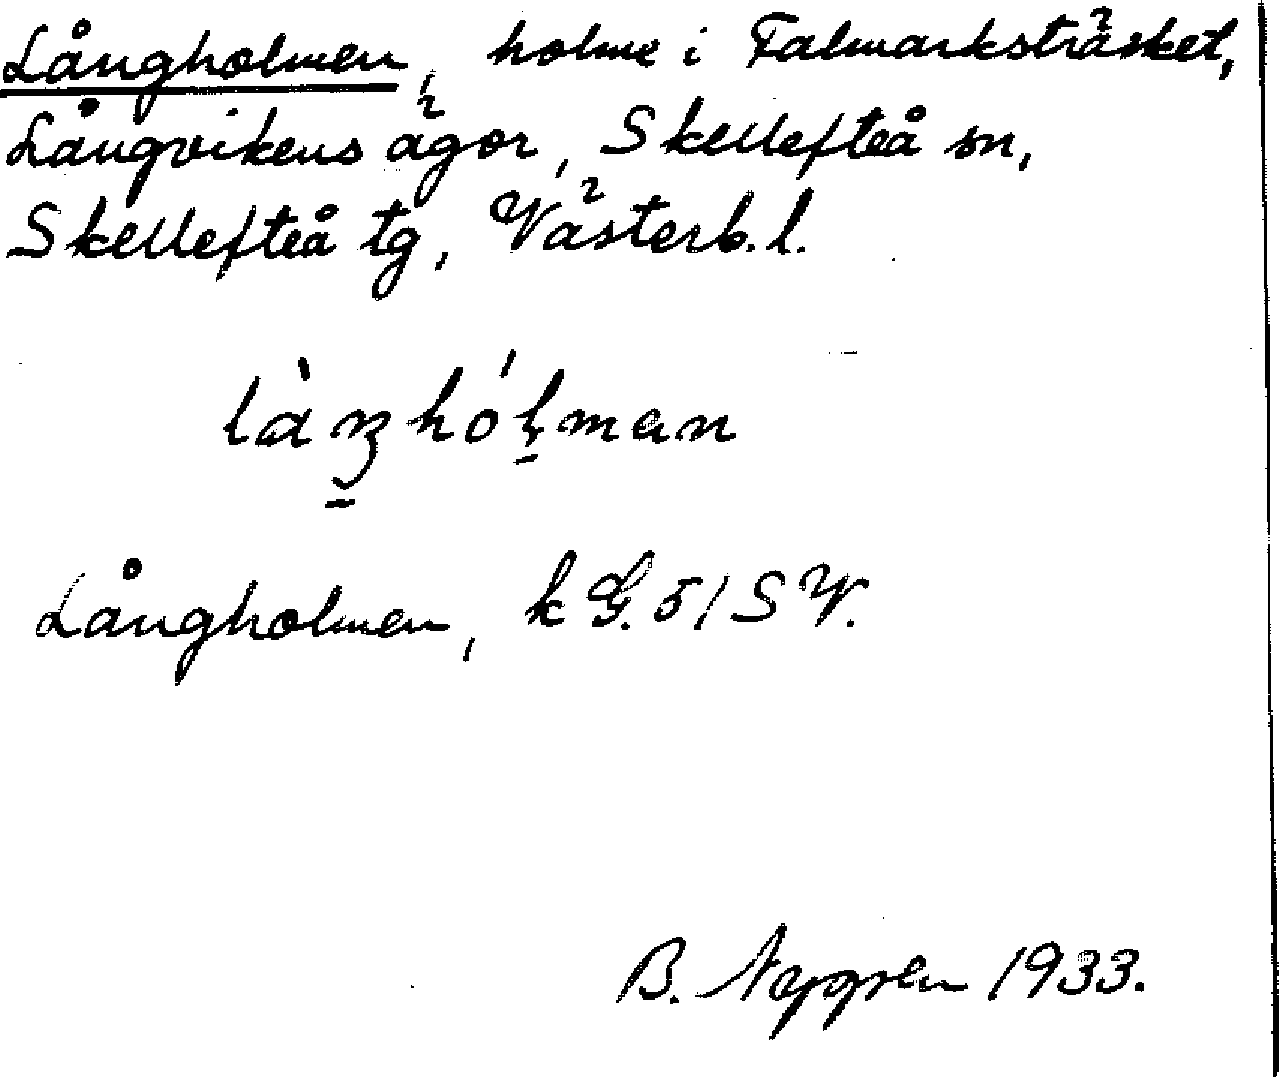 Långholmen, holme i Falmarksträsket,
Långvikens ägor, Skellefteå sn,
Skellefteå tg, Västerb.l.
Långholmen, k G. 51 SV.
B. 1933.